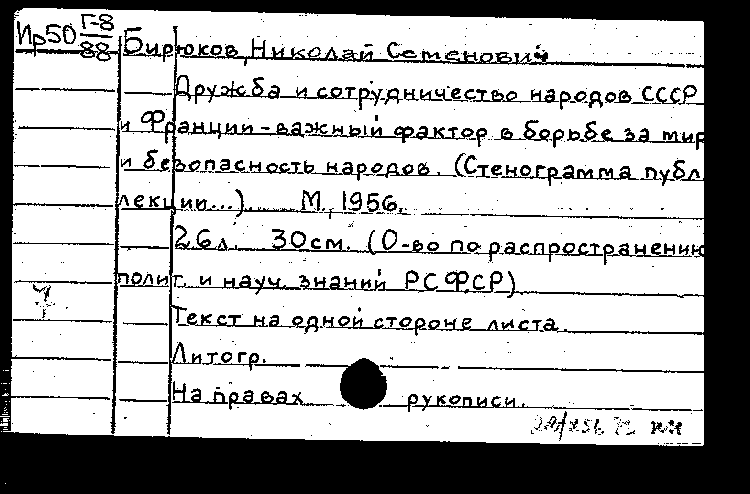 Ир50 Г-8/88 Бирюков, Николай Семенович
Дружба и сотрудничество народов СССР
и Франции - важный фактор в борьбе за мир
и безопасность народов. (Стенограмма публ.
лекции...). М., 1956.
26л. 30см. (О-во по распространению
полит. и науч. знаний РСФСР)
Текст на одной стороне листа.
Литогр.
На правах рукописи.